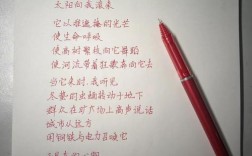 太阳向我滚来
它以难遮掩的光芒
使生命呼吸
使高树繁枝向它舞蹈
使河流带着狂歌奔向它去
当它来时，我听见
冬蛰的虫蛹转动于地下
群众在旷场上高声说话
城市从远方
用钢铁与电力召唤它